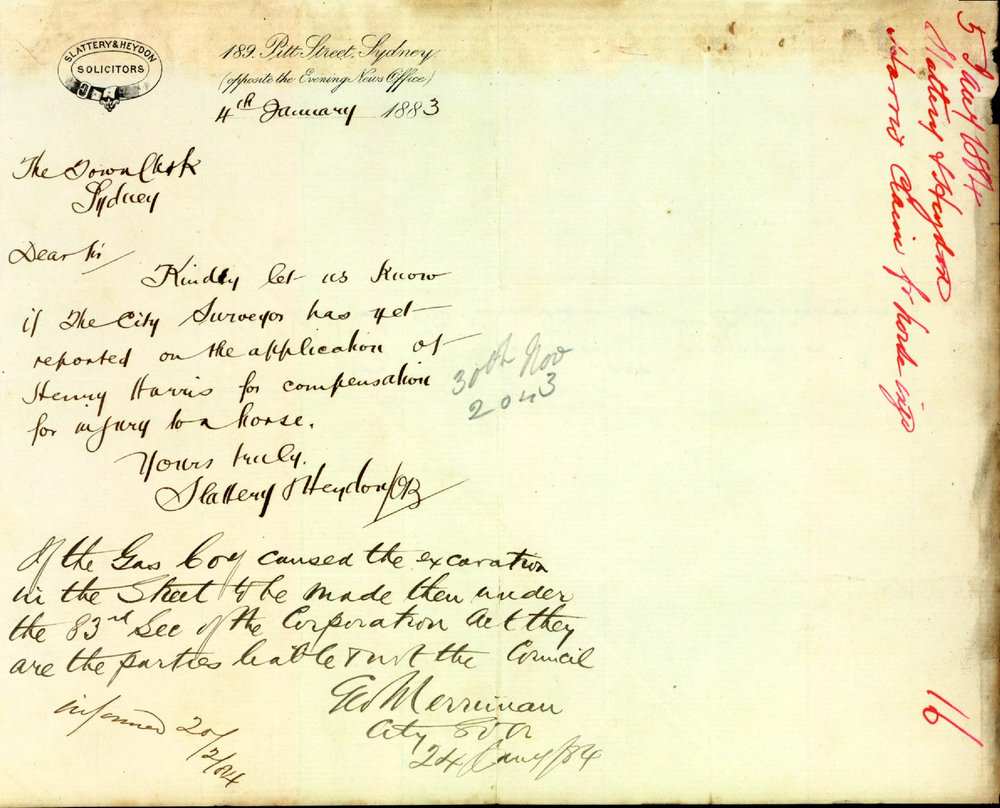 SLATTERY & HEYDON
SOLICITORS
189. Pitt Street, Sydney.
(opposite the Evening News Office)
4th January 1883
The Town Clerk
Sydney
Dear Sir
Kindly let us know
if the City Surveyor has yet
reported on the application of
Henry Harris for compensation
for injury to a horse.
Yours truly.
Slattery & Heydon
30th Nov
2043
If the Gas Coy caused the excavation
in the Street to be made then under
the 83rd Sec of the Corporation Act they
are the parties liable & not the Council
Geo Merriman
City Solr
24 Jany/84
informed 20/2/84
5 Jany 1884
Slattery & Heydon
Harris Claim fr horse
16